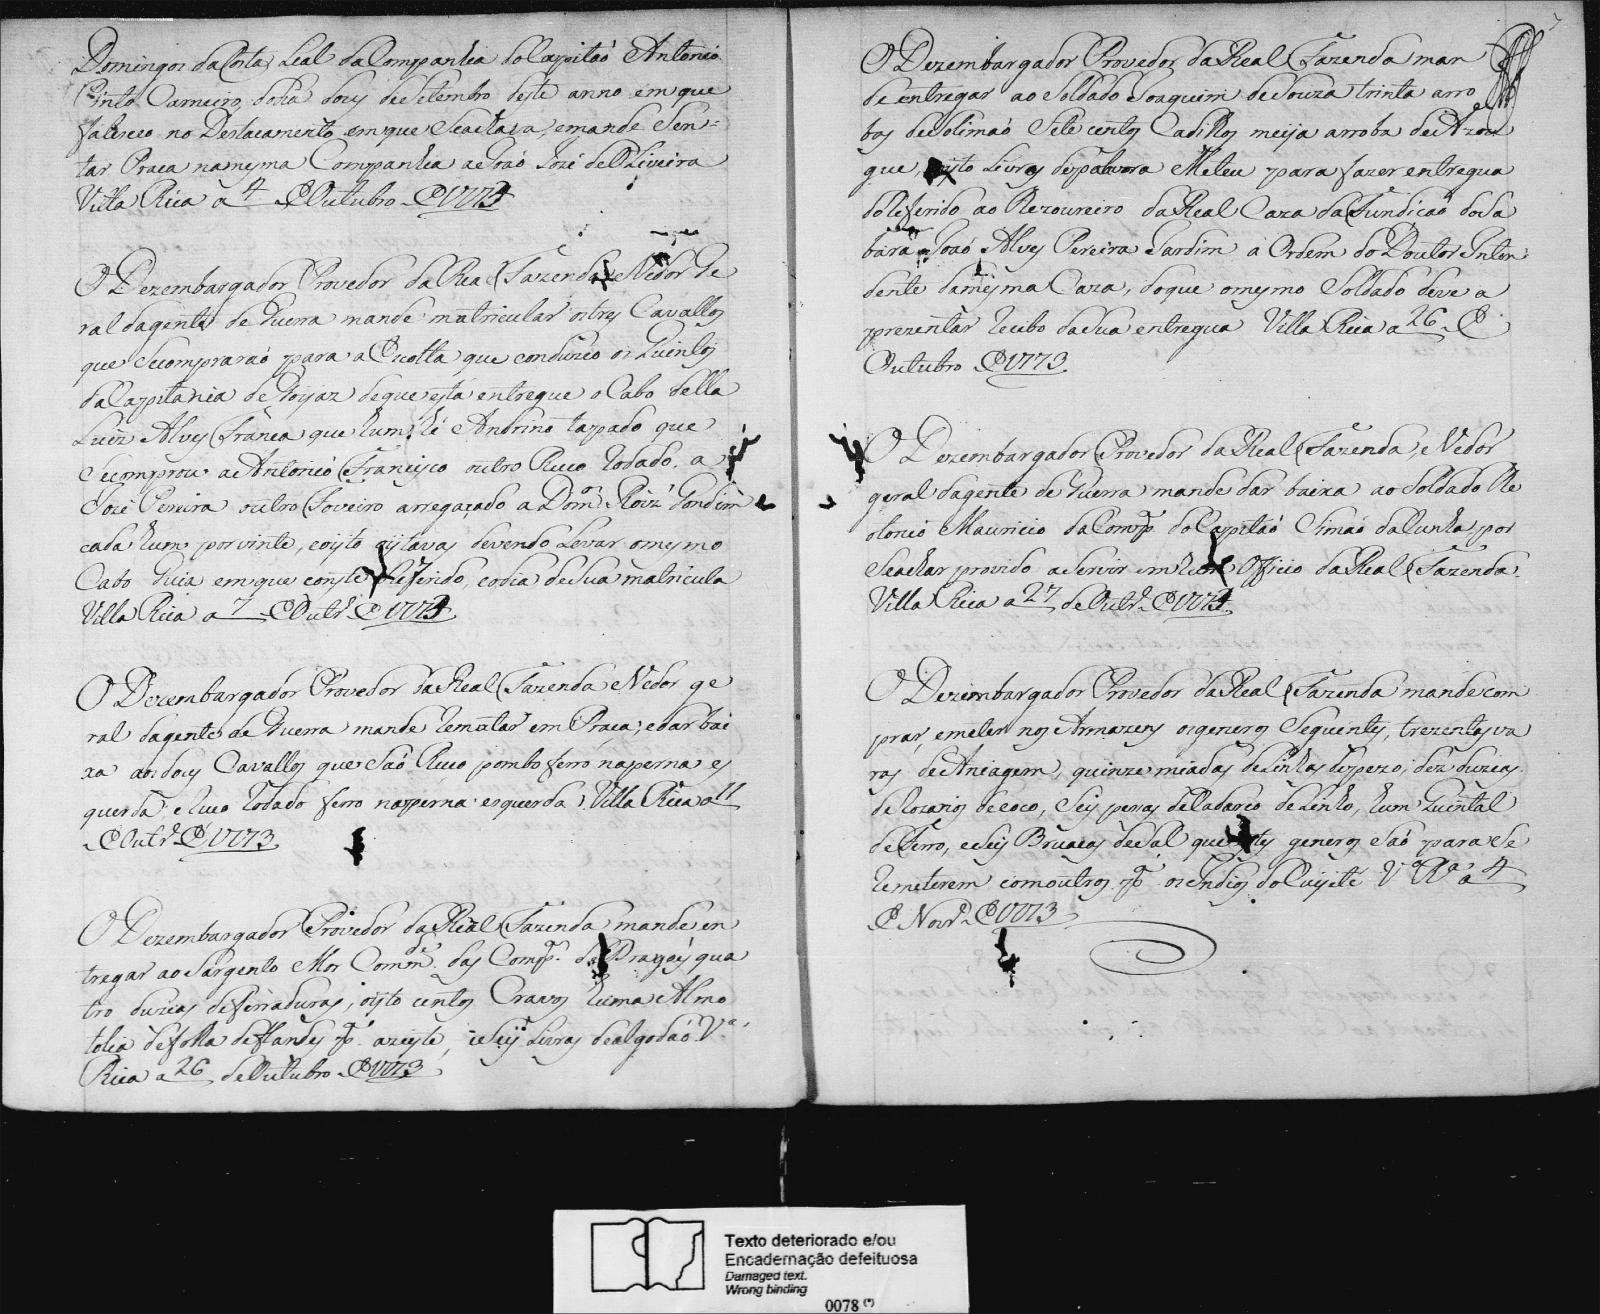 Domingos da Costa Leal da Companhia do Capitaó Antonio
Pinto Carneiro, do dia dous de Setembro deste anno em que
faleceo no Destacamento em que Seachava, emande Sen=
tar Praca namesma Companhia a Joaó Jozé de Oliveira
Villa Rica a 4 de Outubro de 1773
O Dezembargador Provedor da Real Fazenda e Vedor Ge
ral dagente de Guerra mande matricular os tres Cavallos
que Secompraraó para a Escolta, que conduzio os Quintos
da Capitania de Goyaz de que está entregue o Cabo della
Luiz Alves Franca que hum hé Andrino tapado que
Secomprou a Antonio Francisco outro Ruco Rodado, a
Jozé Pereira outro Foveiro arregaçado a Domos Roiz Gondim
cada hum por vinte, eoyto oytavas devendo Levar omesmo
Cabo Guia em que conste o Referido, eodia desua matricula
Villa Rica a 7 de Outro de 1773
O Dezembargador Provedor da Real Fazenda e Vedor ge
ral dagente de Guerra mande Rematar em Praça, edar bai
xa aos dous Cavallos que Saó Ruco pombo ferro naperna es
querda e Ruco Rodado ferro naperna esquerda Villa Rica a 11
de Outro de 1773
O Dezembargador Provedor da Real Fazenda mande en
tregar ao Sargento Mor Comme das Compas de Dragoẽs qua
tro duzias deferraduras, oyto centos Cravos huma Almo
tolia defolha deflandes pa azeyte, eSeis Livras dealgodaó Va
Rica a 26 de Outubro de 1773
O Dezembargador Provedor da Real Fazenda man
de entregar ao Soldado Joaquim de Souza trinta arro
bas deSolimaó Setecentos Cadilhos meya arroba deAzou
gue, oyto Livras depolvora Meleu para fazer entregua
doReferido ao Thezoureiro da Real Caza da Fundicaó do Sa
bará Joaó Alves Pereira Jardim á Ordem do Doutor Inten
dente damesma Caza, doque omesmo Soldado deve a
prezentar Recibo da Sua entregua Villa Rica a 26 de
Outubro de 1773.
O Dezembargador Provedor da Real Fazenda, e Vedor
geral dagente de Guerra mande dar baixa ao Soldado The
otonio Mauricio da Compa do Capitaó Simaó da Cunha por
Seachar provido aServir em hum Officio da Real Fazenda.
Villa Rica a 27 de Outro de 1773
O Dezembargador Provedor da Real Fazenda mande com
prar, emeter nos Armazens os generos Seguintes, trezentas va
ras de Aniagem, quinze miadas deLinhas depezo, dez duzias
deRozarios decoco, Seis pessas deCadarco deLinho, hum Quintal
deFerro, e Seis Bruacas deSal que estes generos Saó para Se
Remeterem comoutros pa os Indios do Cuyeté Va Ra a 4
de Novro de 1773
Texto deteriorado e/ou
Encadernação defeituosa
Damaged text.
Wrong binding
0078 (*)